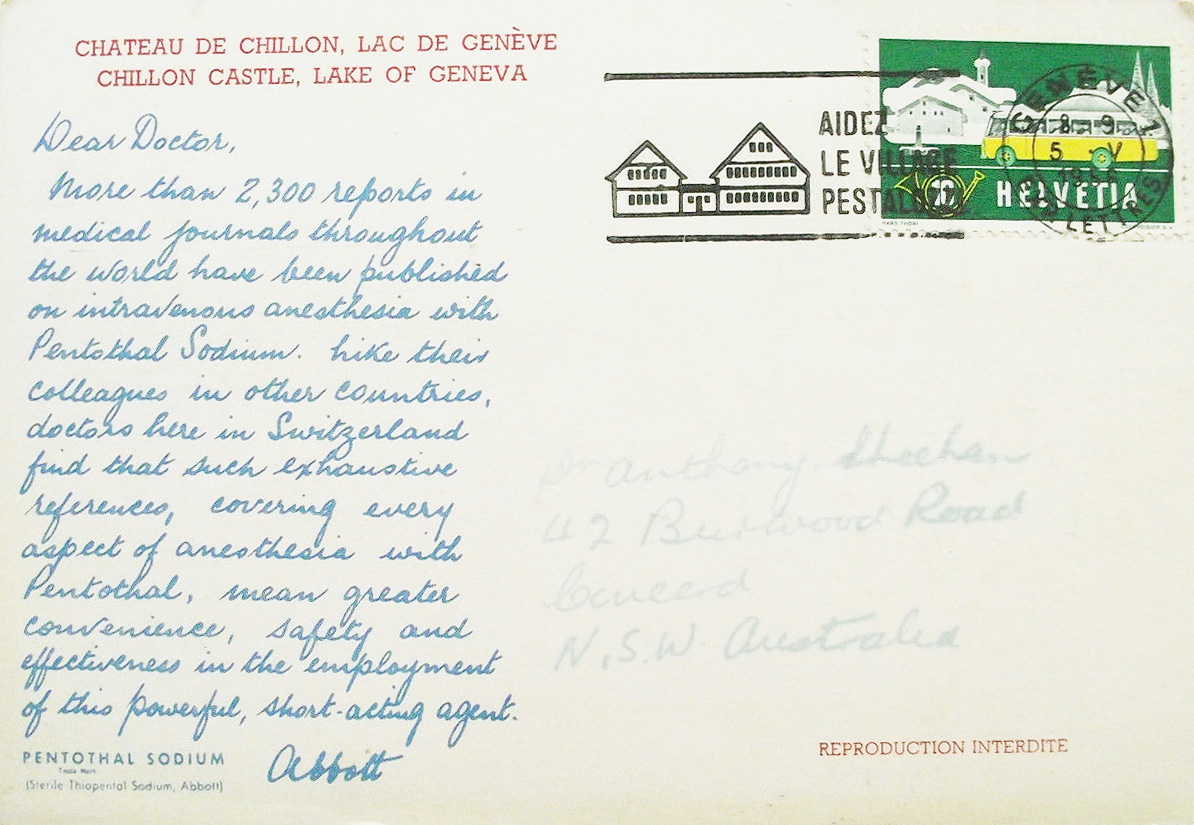 CHATEAU DE CHILLON, LAC DE GENÈVE
CHILLON CASTLE, LAKE OF GENEVA
Dear Doctor,
More than 2,300 reports in
medical journals throughout
the world have been published
on intravenous anesthesia with
Pentothal Sodium. Like their
colleagues in other countries,
doctors here in Switzerland
find that such exhaustive
references, covering every
aspect of anesthesia with
Pentothal, mean greater
convenience, safety and
effectiveness in the employment
of this powerful, short-acting agent.
Abbott
PENTOTHAL SODIUM
Trade Mark
(Sterile Thiopental Sodium, Abbott)
AIDEZ
LE VILLAGE
PESTALOZZI
GENÈVE 1
8-9
5 V
LETTRES
10
HELVETIA
HANS THÖNI
Dr Anthony Sheehan
42 Burwood Road
N.S.W. Australia
REPRODUCTION INTERDITE